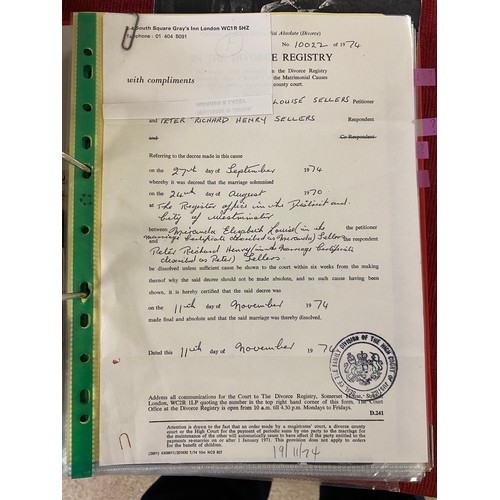 2-4 South Square Gray's Inn London WC1R 5HZ
Telephone: 01 404 5091
Nisi Absolute (Divorce)
No. 10022 of 1974
IN THE DIVORCE REGISTRY
with compliments
in the Divorce Registry
the Matrimonial Causes
county court.
LOUISE SELLERS Petitioner
and PETER RICHARD HENRY SELLERS Respondent
and Co-Respondent
Referring to the decree made in this cause
on the 27th day of September 1974
whereby it was decreed that the marriage solemnised
on the 24th day of August 1970
at The Register office in the District and
City of Westminster
between Miranda Elizabeth Louise (in the the petitioner
marriage Certificate described as Miranda) Sellers
and the respondent
Peter Richard Henry (in the Marriage Certificate
described as Peter) Sellers.
be dissolved unless sufficient cause be shown to the court within six weeks from the making
thereof why the said decree should not be made absolute, and no such cause having been
shown, it is hereby certified that the said decree was
on the 11th day of November 1974
made final and absolute and that the said marriage was thereby dissolved.
Dated this 11th day of November 1974
SEAL OF FAMILY DIVISION OF THE HIGH COURT OF JUSTICE
Address all communications for the Court to The Divorce Registry, Somerset House, Strand,
London, WC2R 1LP quoting the number in the top right hand corner of this form. The Court
Office at the Divorce Registry is open from 10 a.m. till 4.30 p.m. Mondays to Fridays.
D.241
Attention is drawn to the fact that an order made by a magistrates' court, a divorce county
court or the High Court for the payment of periodic sums by one party to the marriage for
the maintenance of the other will automatically cease to have effect if the party entitled to the
payments remarries on or after 1 January 1971. This provision does not apply to orders
for the benefit of children.
19/11/74